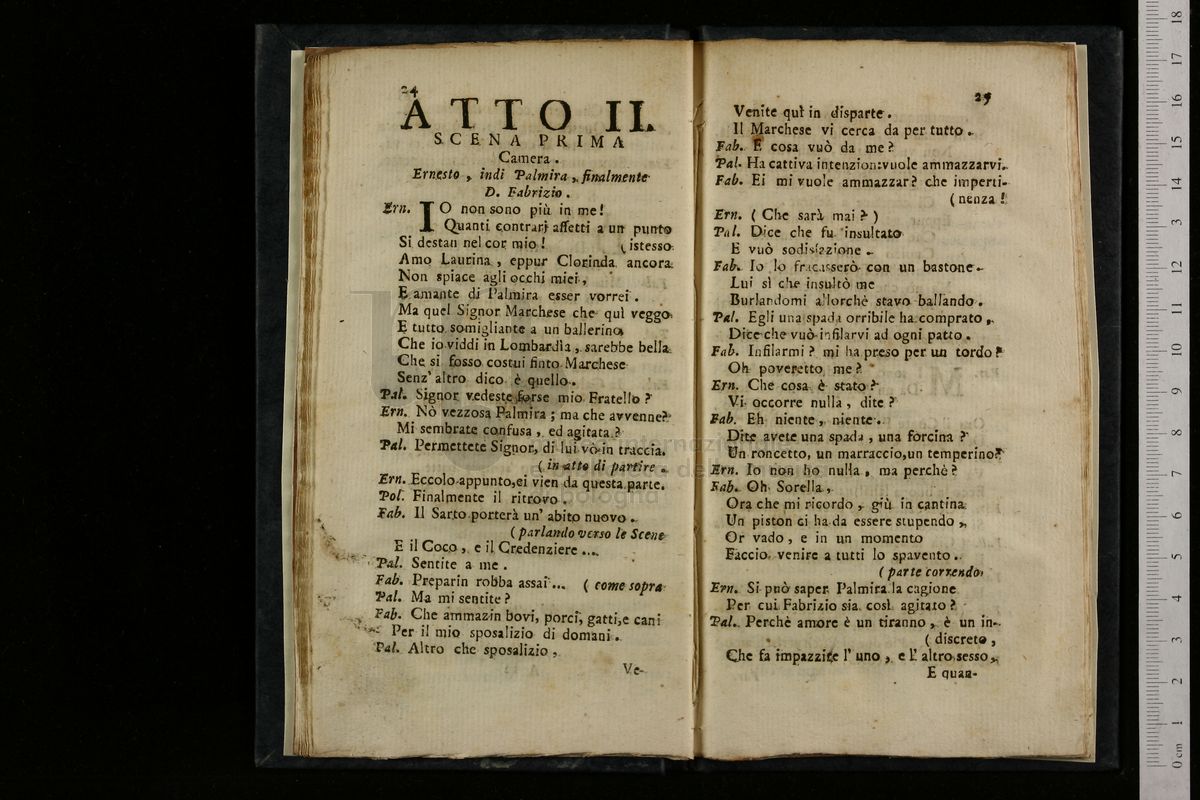 24
ATTO II.
SCENA PRIMA
Camera.
Ernesto, indi Palmira, finalmente
D. Fabrizio.
Ern. IO non sono più in me!
Quanti contrarj affetti a un punto
Si destan nel cor mio! (istesso
Amo Laurina, eppur Clorinda ancora
Non spiace agli occhi miei,
E amante di Palmira esser vorrei.
Ma quel Signor Marchese che quì veggo
E tutto somigliante a un ballerino
Che io viddi in Lombardìa, sarebbe bella
Che si fosso costui finto Marchese
Senz' altro dico è quello.
Pal. Signor vedeste forse mio Fratello?
Ern. Nò vezzosa Palmira; ma che avvenne?
Mi sembrate confusa, ed agitata?
Pal. Permettete Signor, di lui vò in traccia.
(in atto di partire.
Ern. Eccolo appunto, ei vien da questa parte.
Pol. Finalmente il ritrovo.
Fab. Il Sarto porterà un' abito nuovo.
(parlando verso le Scene
E il Coco, e il Credenziere ....
Pal. Sentite a me.
Fab. Preparin robba assai ... (come sopra
Pal. Ma mi sentite?
Fab. Che ammazin bovi, porci, gatti, e cani
Per il mio sposalizio di domani.
Pal. Altro che sposalizio,
Ve-
25
Venite quì in disparte.
Il Marchese vi cerca da per tutto.
Fab. E cosa vuò da me?
Pal. Ha cattiva intenzion: vuole ammazzarvi.
Fab. Ei mi vuole ammazzar? che imperti-
(nenza!
Ern. (Che sarà mai?)
Pal. Dice che fu insultato
E vuò sodisfazione.
Fab. Io lo fracasserò con un bastone.
Lui sì che insultò me
Burlandomi allorchè stavo ballando.
Pal. Egli una spada orribile ha comprato,
Dice che vuò infilarvi ad ogni patto.
Fab. Infilarmi? mi ha preso per un tordo?
Oh poveretto me?
Ern. Che cosa è stato?
Vi occorre nulla, dite?
Fab. Eh niente, niente.
Dite avete una spada, una forcina?
Un roncetto, un marraccio, un temperino?
Ern. Io non ho nulla, ma perchè?
Fab. Oh Sorella,
Ora che mi ricordo, giù in cantina
Un piston ci ha da essere stupendo,
Or vado, e in un momento
Faccio venire a tutti lo spavento.
(parte correndo
Ern. Si può saper Palmira la cagione
Per cui Fabrizio sia così agitato?
Pal. Perchè amore è un tiranno, è un in-
(discreto,
Che fa impazzite l' uno, e l' altro sesso,
E quan-